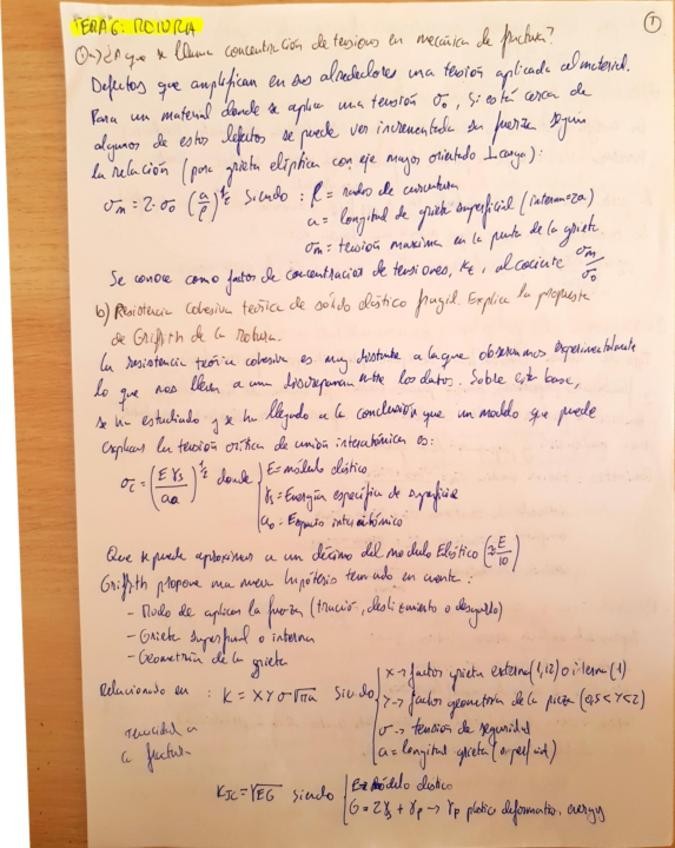 TEMA 6: ROTURA
1
1 a) ¿A que se llama concentración de tensiones en mecánica de fractura?
Defectos que amplifican en sus alrededores una tensión aplicada al material.
Para un material donde se aplica una tensión σ₀, si está cerca de
algunos de estos defectos se puede ver incrementada su fuerza según
la relación (para grieta elíptica con eje mayor orientado ⊥ carga):
σm = 2·σ₀ (a/ρ)^½ siendo : ρ = radio de curvatura
a = longitud de grieta superficial (interna=2a)
σm = tensión maxima en la punta de la grieta
Se conoce como factor de concentración de tensiones, Kt, al cociente σm/σ₀
b) Resistencia cohesiva teórica de sólido elástico frágil. Explica la propuesta
de Griffith de la rotura.
La resistencia teórica cohesiva es muy distinta a la que observamos experimentalmente
lo que nos lleva a una discrepancia entre los datos. Sobre esta base,
se ha estudiado y se ha llegado a la conclusión que un modelo que puede
explicar la tensión crítica de unión interatómica es:
σc = (E γs/a₀)^½ donde { E = módulo elástico
γs = Energía específica de superficie
a₀ = Espacio interatómico
Que se puede aproximar a un décimo del modulo Elástico (≈ E/10)
Griffith propone una nueva hipótesis teniendo en cuenta :
- Modo de aplicar la fuerza (tracción, deslizamiento o desgarro)
- Grieta superficial o interna
- Geometría de la grieta
Relacionado en : K = X Y σ √πa siendo { X → factor grieta externa (1,12) o interna (1)
Y → factor geometría de la pieza (0,5 < Y < 2)
σ → tensión de seguridad
a = longitud grieta (superficial)
tenacidad a
la fractura
KIC = √EG siendo { E = módulo elástico
G = 2γs + γp → γp plastic deformation energy